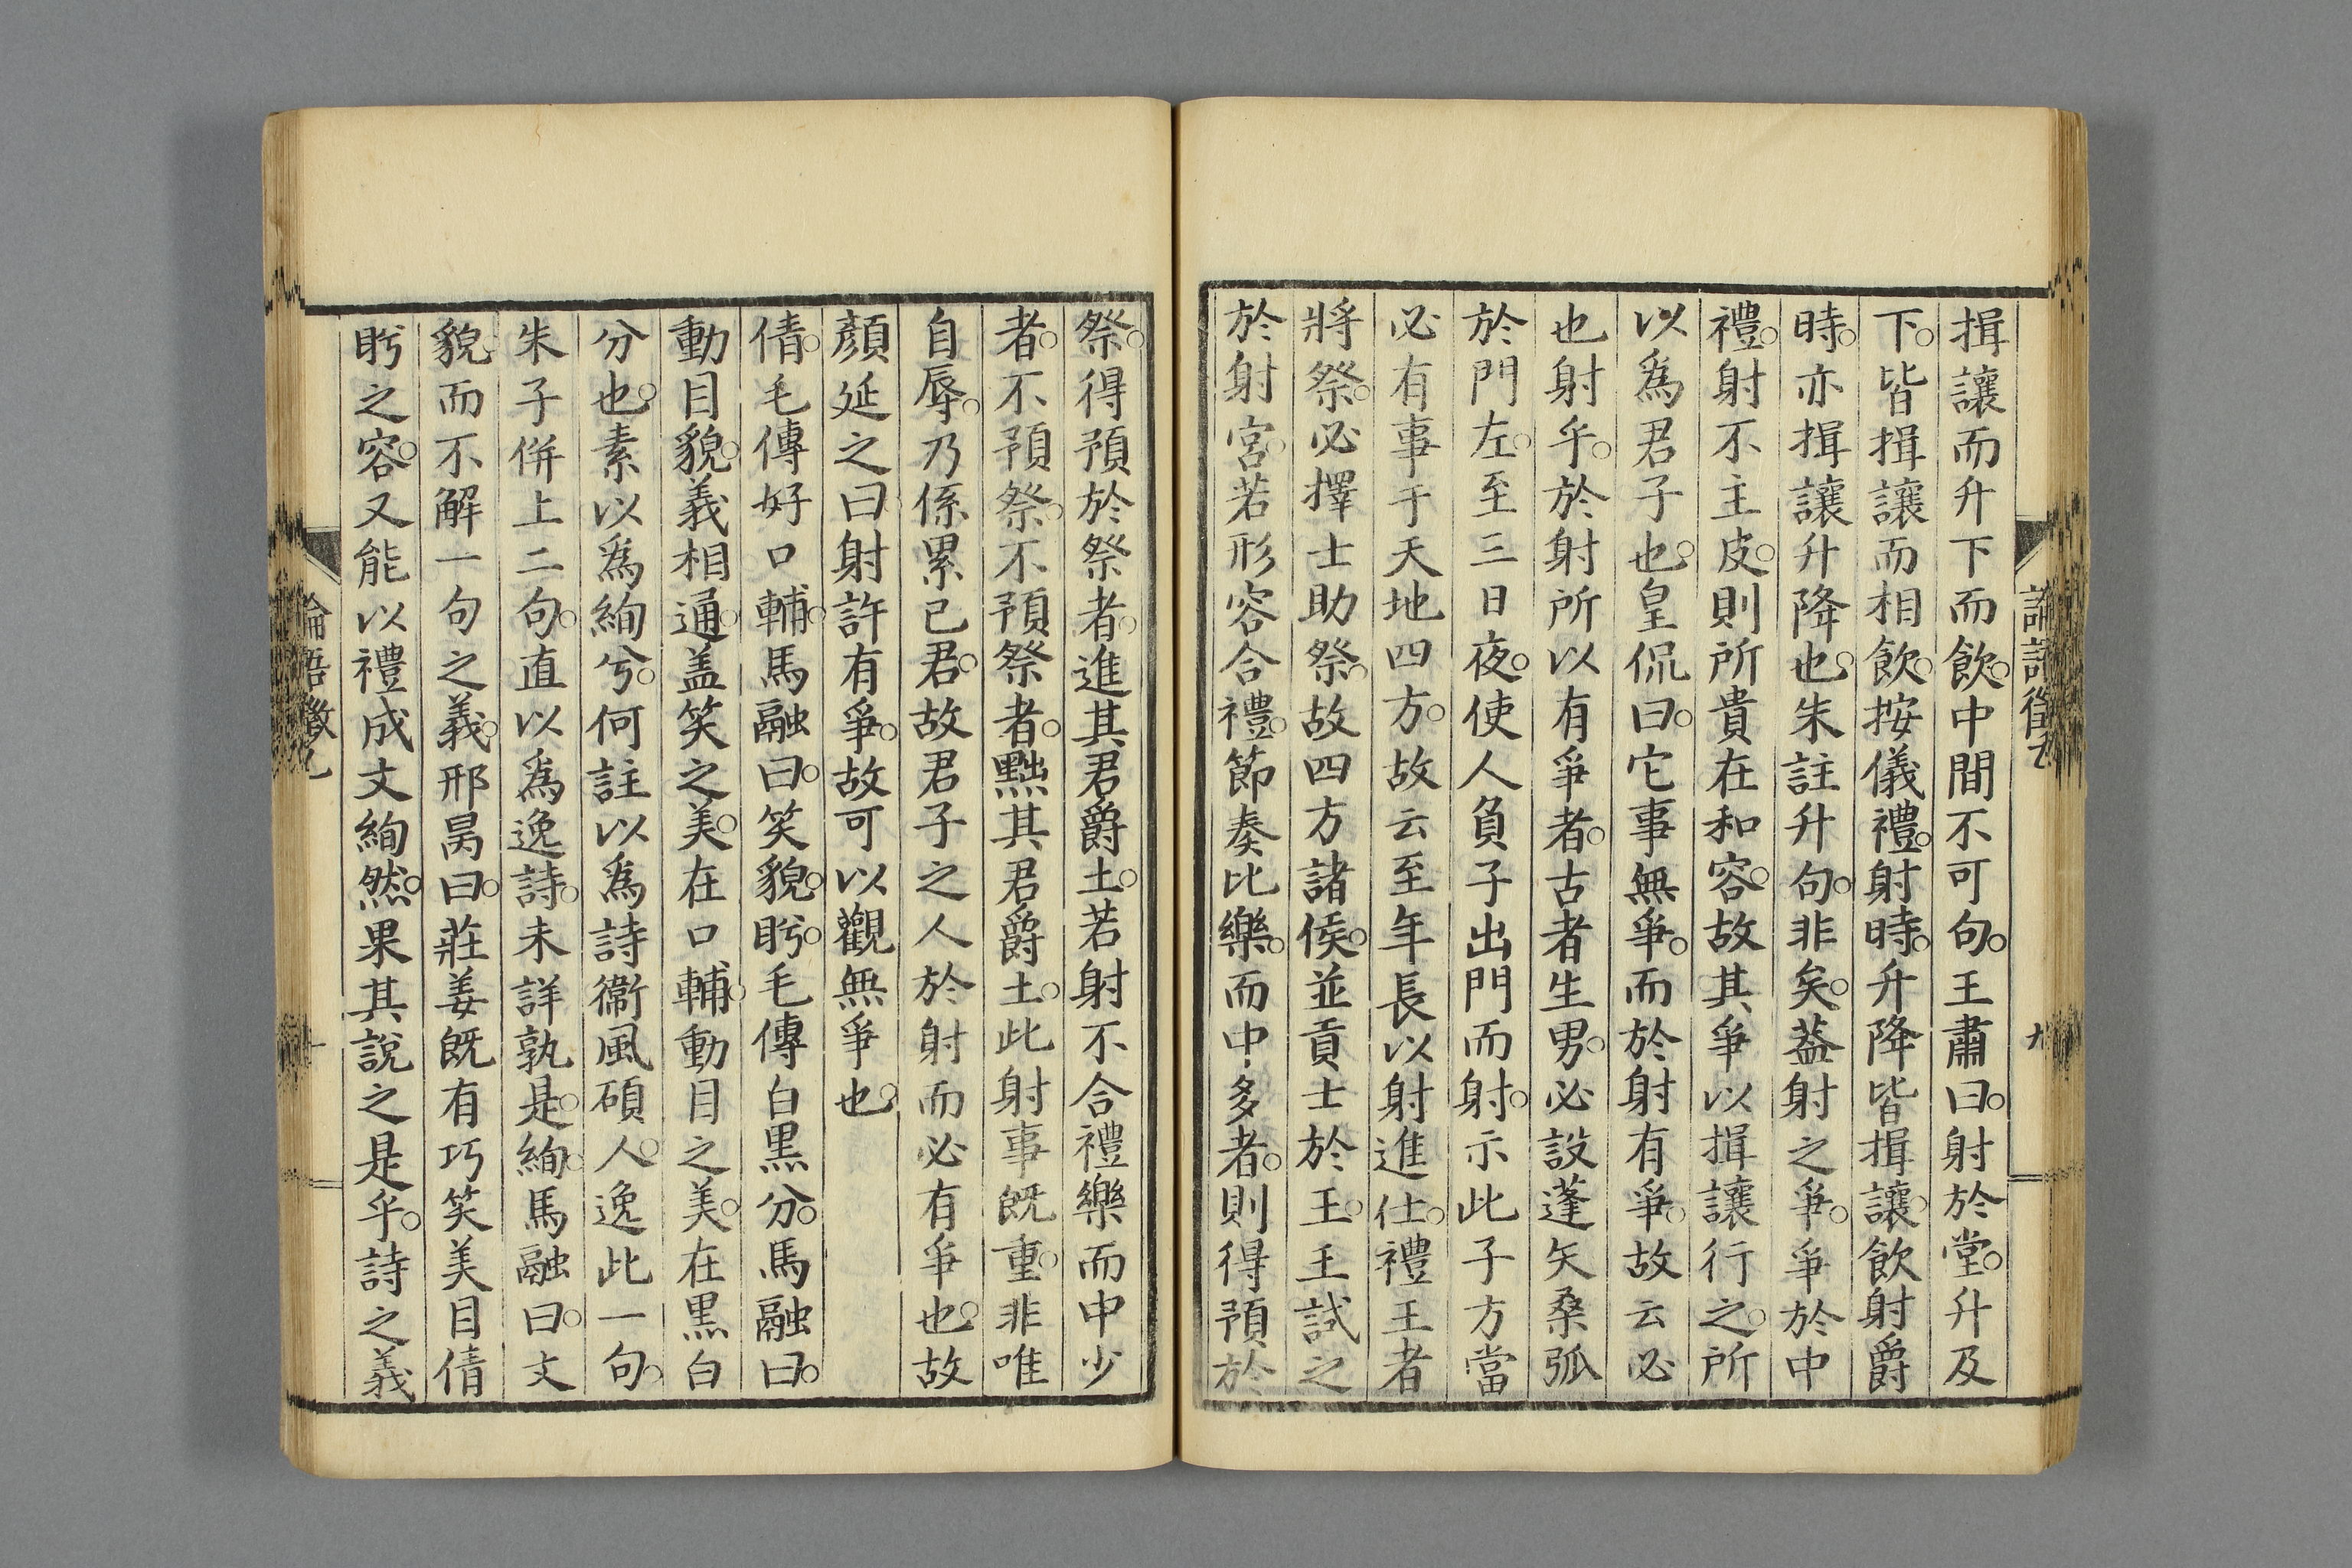 揖讓而升下而飲○中間不可句○王肅曰○射於堂○升及
下○皆揖讓而相飲○按儀禮○射時○升降皆揖讓○飲射爵
時○亦揖讓升降也○朱註升句○非矣○蓋射之爭○爭於中
禮○射不主皮○則所貴在和容○故其爭以揖讓行之○所
以爲君子也○皇侃曰○它事無爭○而於射有爭○故云必
也射乎○於射所以有爭者○古者生男○必設蓬矢桑弧
於門左○至三日夜○使人負子出門而射○示此子方當
必有事于天地四方○故云至年長以射進仕○禮王者
將祭○必擇士助祭○故四方諸侯○並貢士於王○王試之
於射宮○若形容合禮○節奏比樂○而中多者○則得預於
祭○得預於祭者○進其君爵土○若射不合禮樂而中少
者○不預祭○不預祭者○黜其君爵土○此射事既重○非唯
自辱○乃係累已君○故君子之人於射而必有爭也○故
顏延之曰射許有爭○故可以觀無爭也○
倩○毛傳好口輔○馬融曰○笑貌○盻○毛傳白黑分○馬融曰○
動目貌○義相通○盖笑之美○在口輔○動目之美○在黑白
分也○素以爲絢兮○何註以爲詩衞風碩人○逸此一句○
朱子併上二句○直以爲逸詩○未詳孰是○絢○馬融曰○文
貌○而不解一句之義○邢昺曰○莊姜既有巧笑美目倩
盻之容○又能以禮成文絢然○果其說之是乎○詩之義
論語徵乙